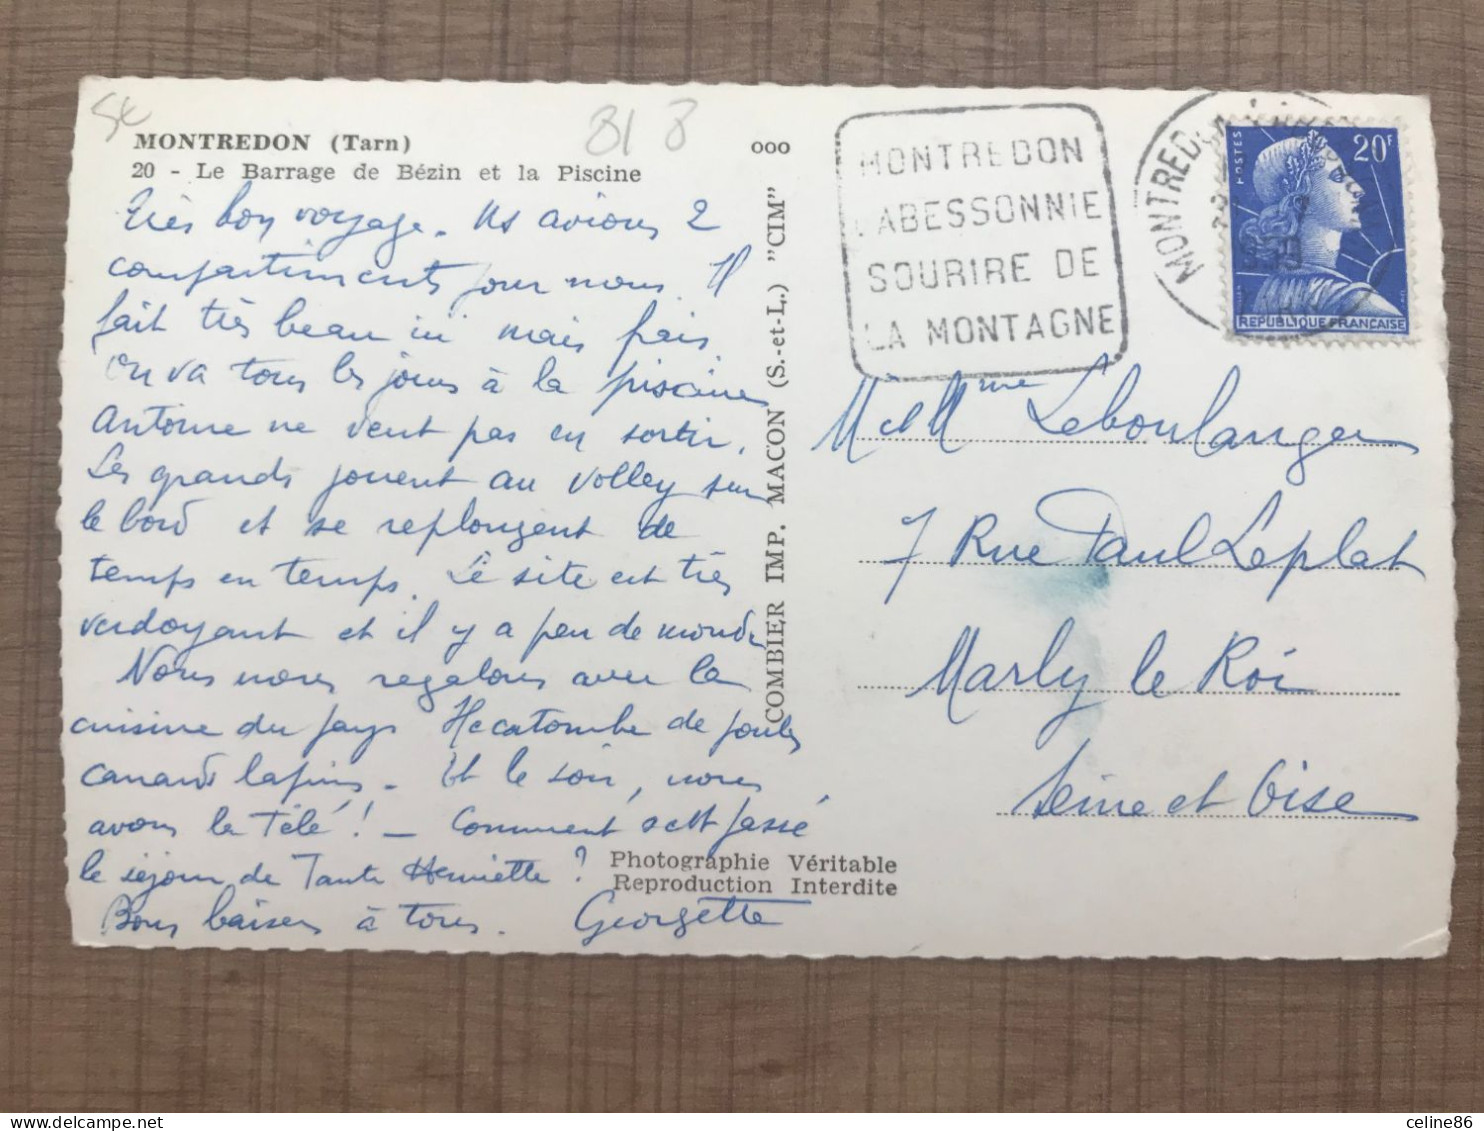 81 8
MONTREDON (Tarn)
20 - Le Barrage de Bézin et la Piscine
Très bon voyage. Ns avions 2
compartiments pour nous. Il
fait très beau ici mais frais
On va tous les jours à la piscine
Antoine ne veut pas en sortir.
Les grands jouent au volley sur
le bord et se replongent de
temps en temps. Le site est très
verdoyant et il y a peu de monde
Nous nous régalons avec la
cuisine du pays Hécatombe de poules
canards lapins. Et le soir, nous
avons la Télé ! - Comment s'est passé
le séjour de Tante Henriette ?
Bons baisers à tous. Georgette
ooo
COMBIER IMP. MACON (S.-et-L.) "CIM"
Photographie Véritable
Reproduction Interdite
MONTREDON
LABESSONNIE
SOURIRE DE
LA MONTAGNE
POSTES
20F
REPUBLIQUE FRANÇAISE
M et Mme Leboulanger
7 Rue Paul Leplat
Marly le Roi
Seine et Oise
celine86